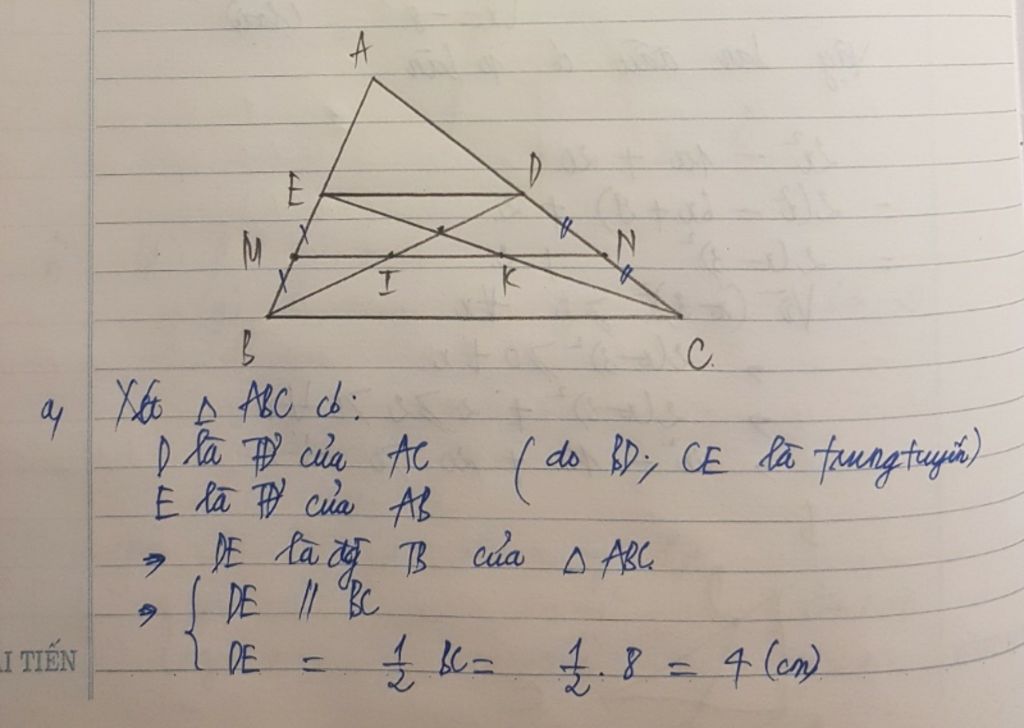 A
E
D
M
N
I
K
B
C
a, Xét △ ABC có:
D là TĐ của AC (do BD; CE là trung tuyến)
E là TĐ của AB
⇒ DE là đg TB của △ ABC.
⇒ { DE // BC
DE = 1/2 BC = 1/2 . 8 = 4 (cm)
TIẾN